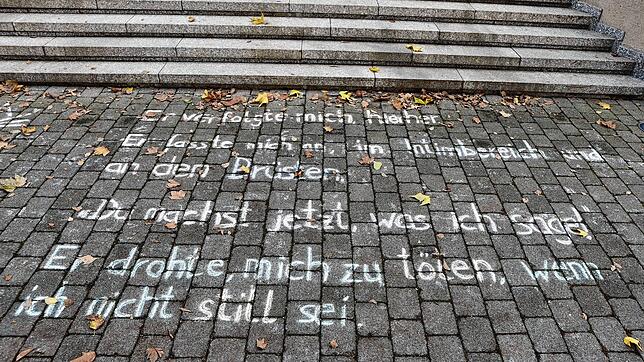 Er verfolgte mich hierher.
Er fasste mich an, im Intimbereich und
an den Brüsten.
„Du machst jetzt, was ich sage!"
Er drohte mich zu töten, wenn
ich nicht still sei.